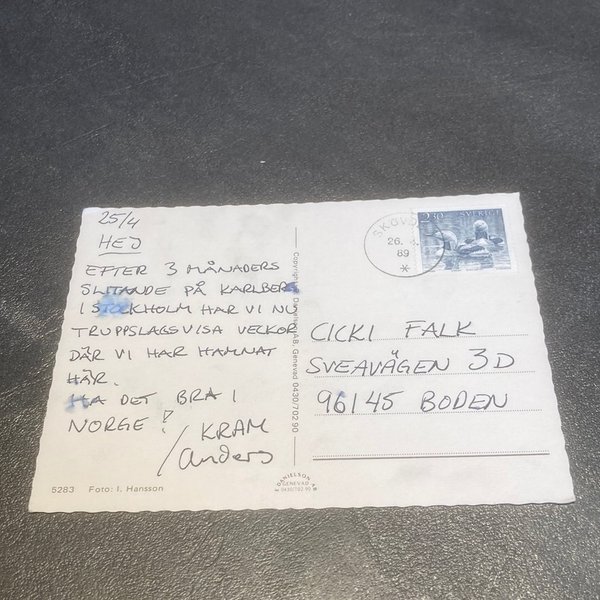 25/4
HEJ
EFTER 3 MÅNADERS
SLITANDE PÅ KARLBERG
I STOCKHOLM HAR VI NU
TRUPPSLAGSVISA VECKOR
DÄR VI HAR HAMNAT
HÄR.
HA DET BRA I
NORGE!
/ KRAM
Anders
5283 Foto: I. Hansson
Copyright Danielson AB, Genevad 0430/702 90
DANIELSON
GENEVAD
0430/702 90
SKÖVDE
26.
89
2.30 SVERIGE
CICKI FALK
SVEAVÄGEN 3D
96145 BODEN